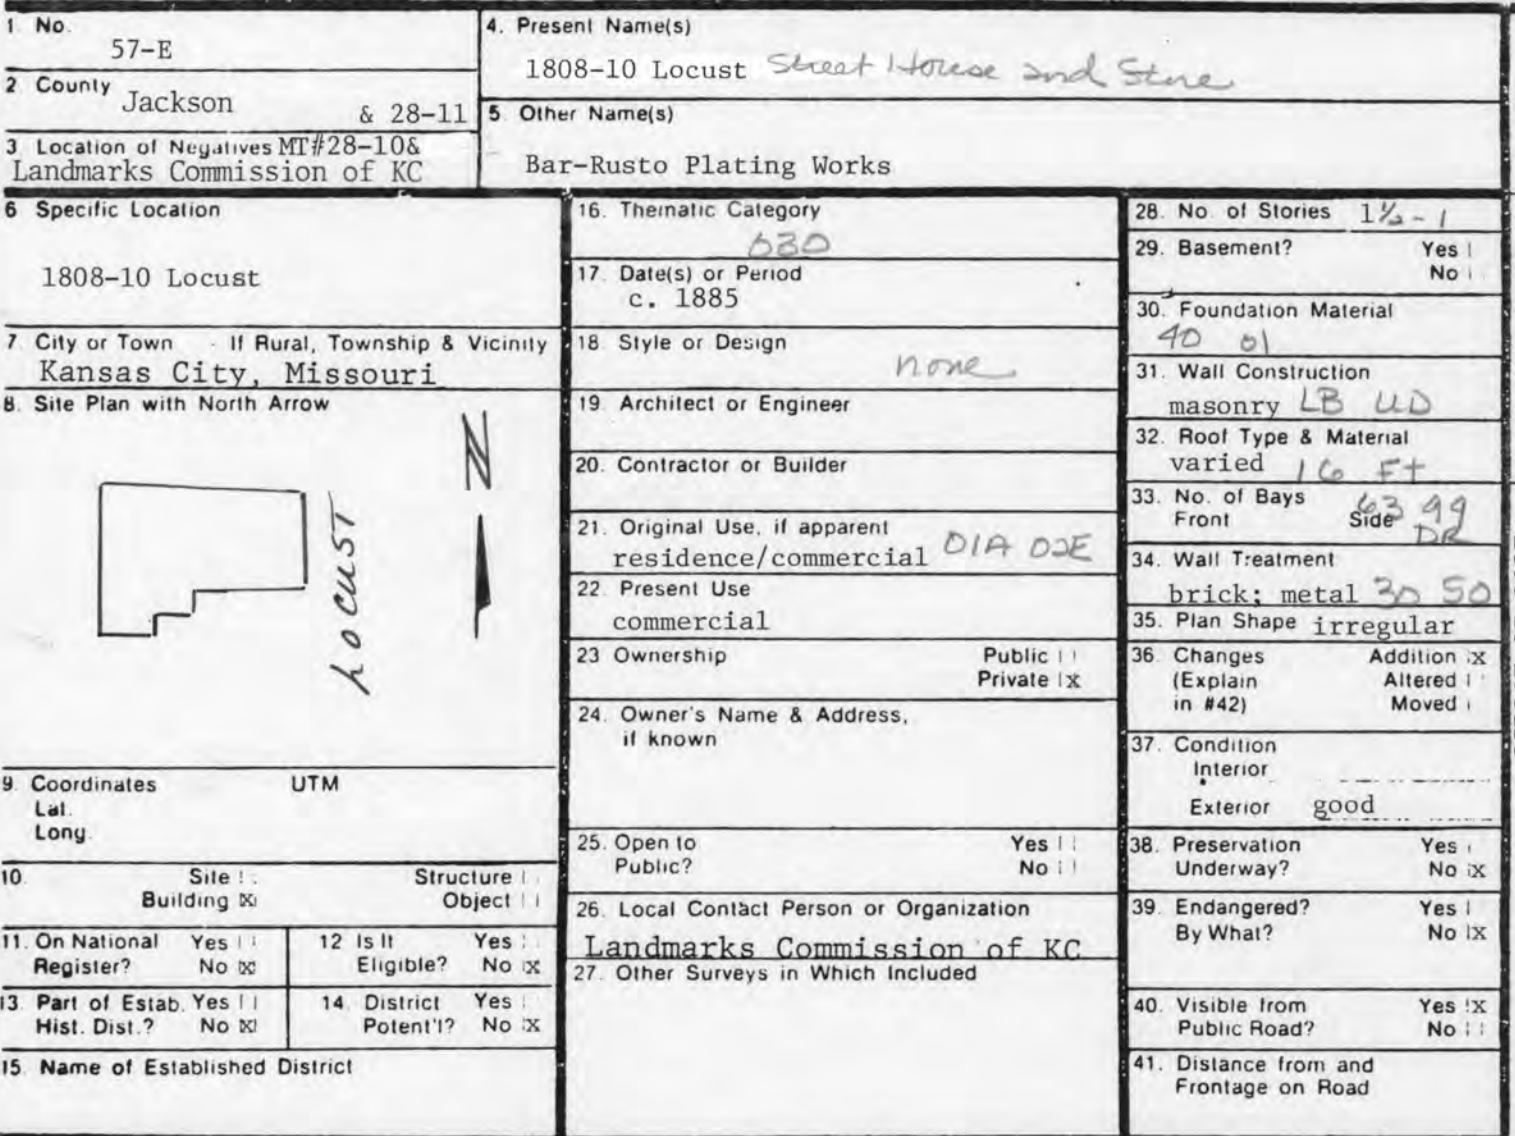 1. No.
57-E
2 County
Jackson & 28-11
3 Location of Negatives MT#28-10&
Landmarks Commission of KC
4. Present Name(s)
1808-10 Locust Street House and Store
5 Other Name(s)
Bar-Rusto Plating Works
6 Specific Location
1808-10 Locust
7 City or Town If Rural, Township & Vicinity
Kansas City, Missouri
8. Site Plan with North Arrow
N
LOCUST
9. Coordinates UTM
Lat.
Long.
10. Site Structure
Building X Object
11. On National Yes
Register? No X
12 Is It Yes
Eligible? No X
13. Part of Estab. Yes
Hist. Dist.? No X
14. District Yes
Potent'l? No X
15. Name of Established District
16. Thematic Category
030
17. Date(s) or Period
c. 1885
18. Style or Design
none
19. Architect or Engineer
20. Contractor or Builder
21. Original Use, if apparent
residence/commercial 01A 02E
22. Present Use
commercial
23 Ownership Public
Private X
24. Owner's Name & Address,
if known
25. Open to Yes
Public? No
26. Local Contact Person or Organization
Landmarks Commission of KC
27. Other Surveys in Which Included
28. No. of Stories 1½-1
29. Basement? Yes
No
30. Foundation Material
40 01
31. Wall Construction
masonry LB UD
32. Roof Type & Material
varied 16 Ft
33. No. of Bays 63 99
Front Side DR
34. Wall Treatment
brick; metal 30 50
35. Plan Shape irregular
36. Changes Addition X
(Explain Altered
in #42) Moved
37. Condition
Interior
Exterior good
38. Preservation Yes
Underway? No X
39. Endangered? Yes
By What? No X
40. Visible from Yes X
Public Road? No
41. Distance from and
Frontage on Road